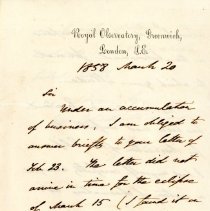 Royal Observatory, Greenwich,
London, S.E.
1858 March 20
Sir
Under an accumulation
of business, I am obliged to
answer briefly to your letter of
Feb. 23. The letter did not
arrive in time for the eclipse
of March 15 (I found it on